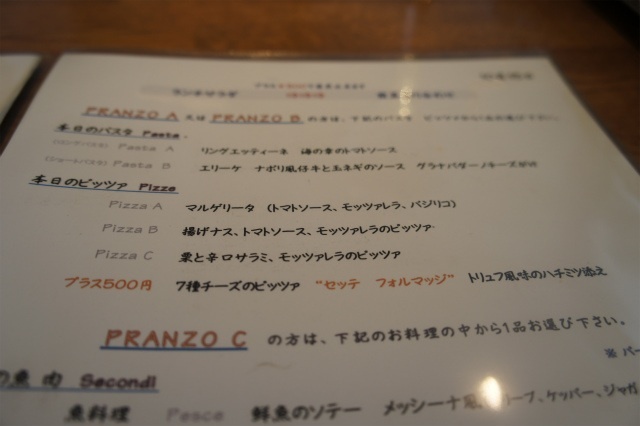 PRANZO A 又は PRANZO B の方は、下記のパスタ
本日のパスタ Pasta
Pasta A リングエッティーネ 海の幸のトマトソース
(ショートパスタ) Pasta B エリーケ ナポリ風仔牛と玉ネギのソース グラナパダーノチーズ
本日のピッツァ Pizze
Pizza A マルゲリータ (トマトソース、モッツァレラ、バジリコ)
Pizza B 揚げナス、トマトソース、モッツァレラのピッツァ
Pizza C 栗と辛口サラミ、モッツァレラのピッツァ
プラス500円 7種チーズのピッツァ “セッテ フォルマッジ” トリュフ風味のハチミツ添え
PRANZO C の方は、下記のお料理の中から1品お選び下さい。
の魚 肉 Secondi
魚料理 Pesce 鮮魚のソテー メッシーナ風 ケッパー、ジャガ